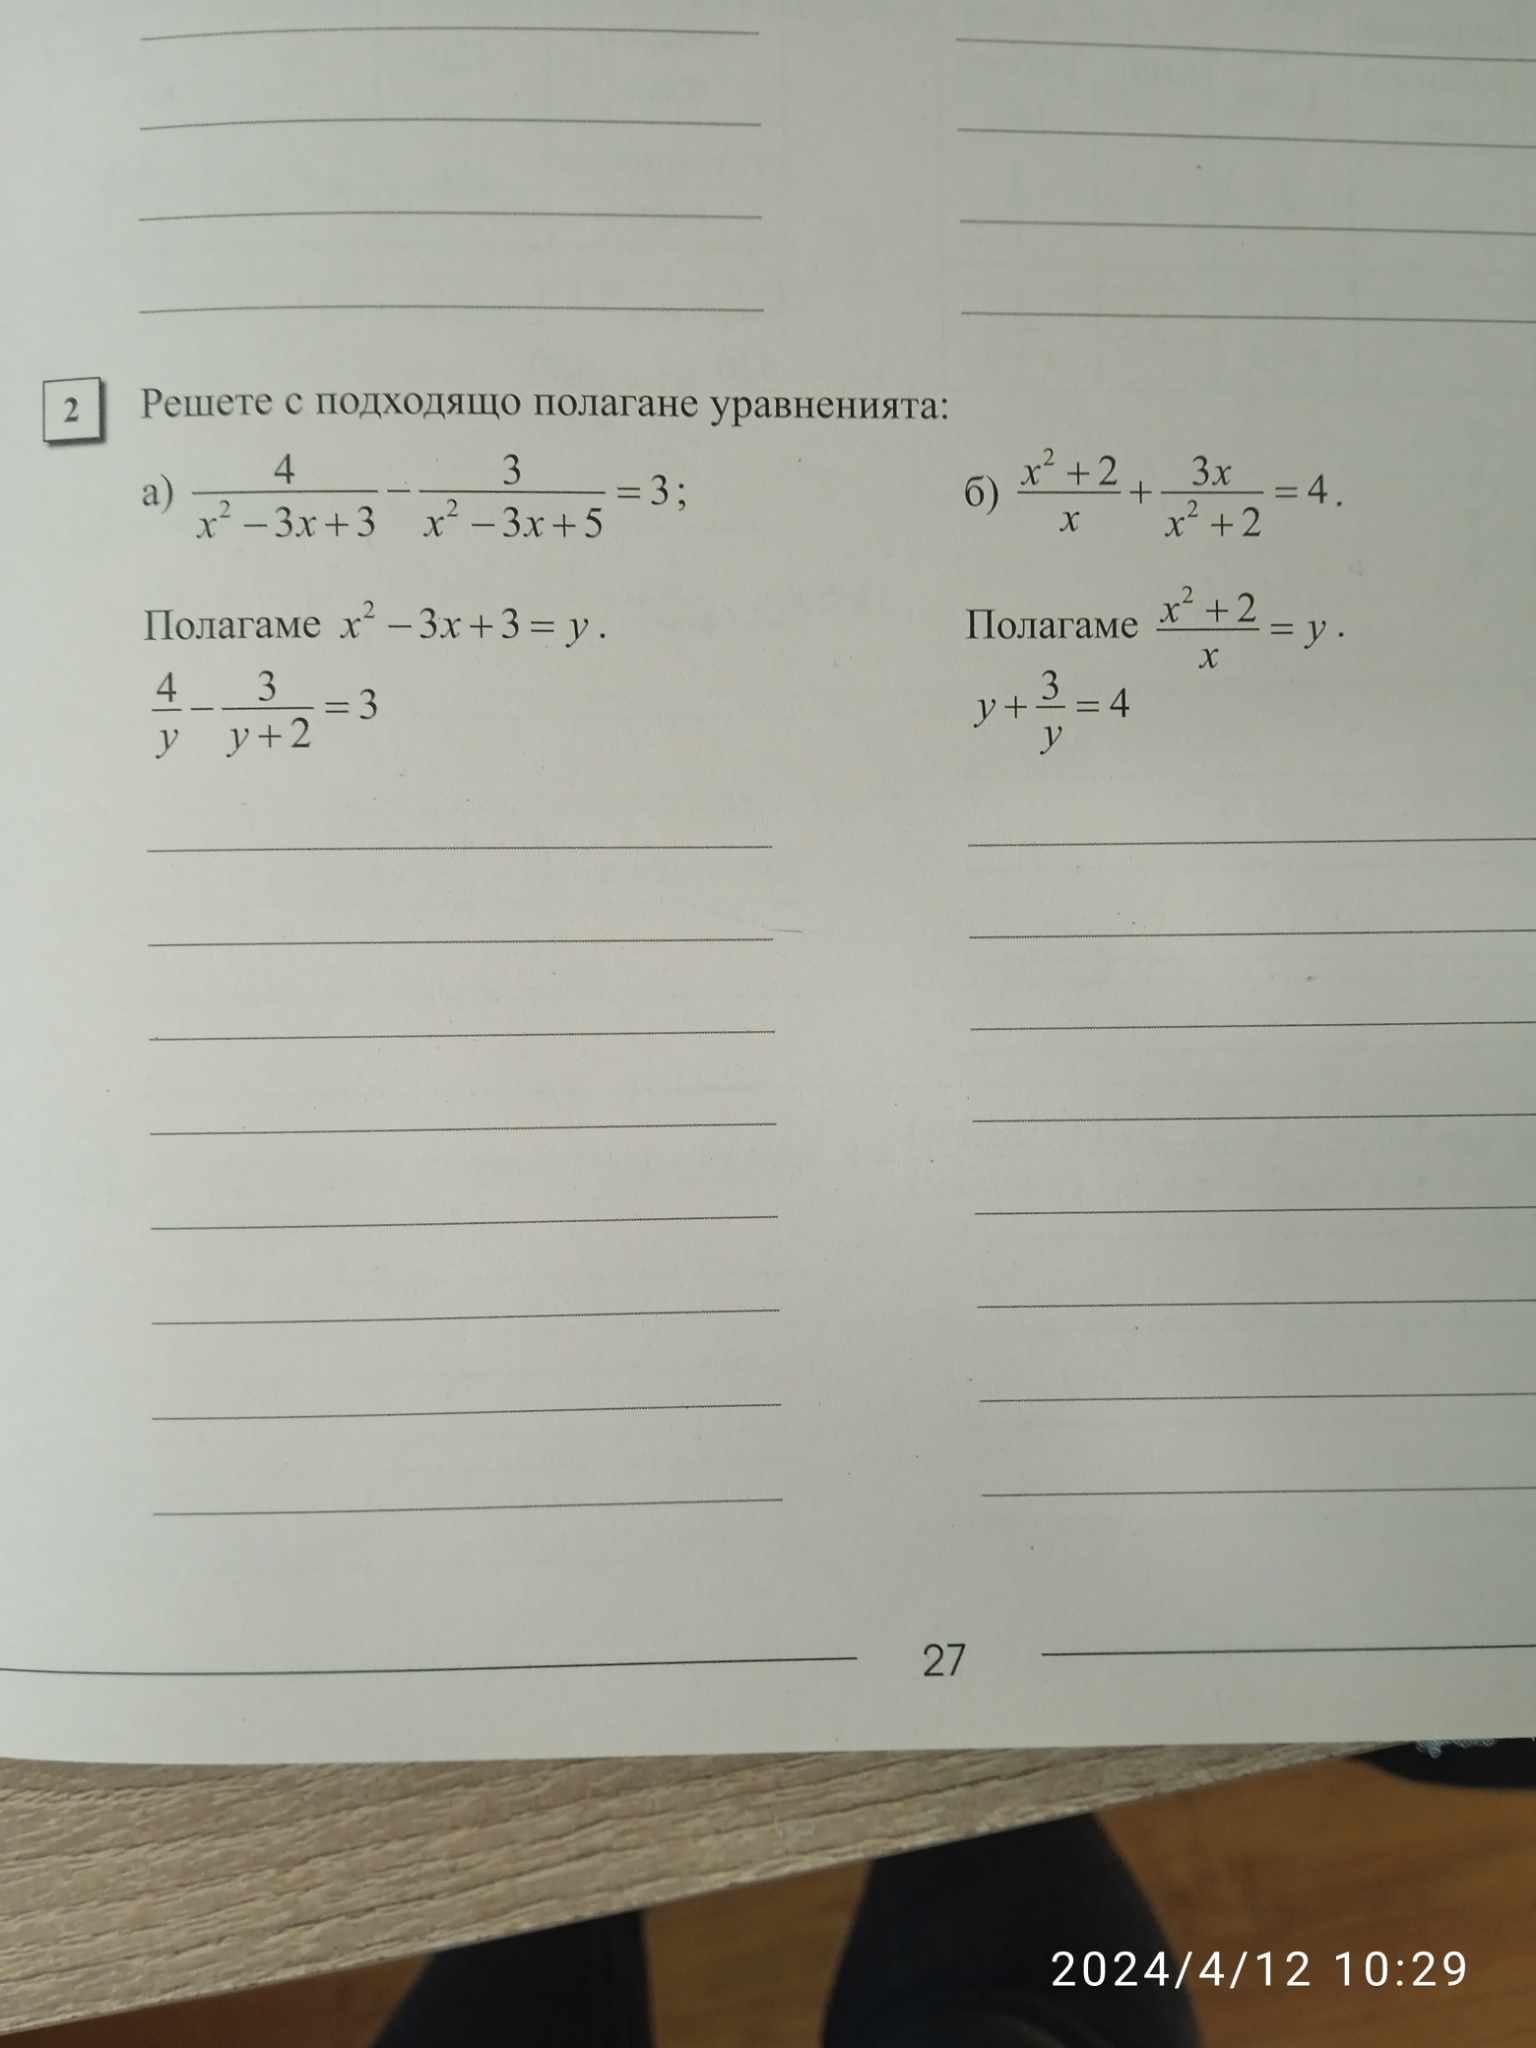 2 Решете с подходящо полагане уравненията:
а) 4/(x² − 3x + 3) − 3/(x² − 3x + 5) = 3;
б) (x² + 2)/x + 3x/(x² + 2) = 4.
Полагаме x² − 3x + 3 = y.
4/y − 3/(y + 2) = 3
Полагаме (x² + 2)/x = y.
y + 3/y = 4
27
2024/4/12 10:29